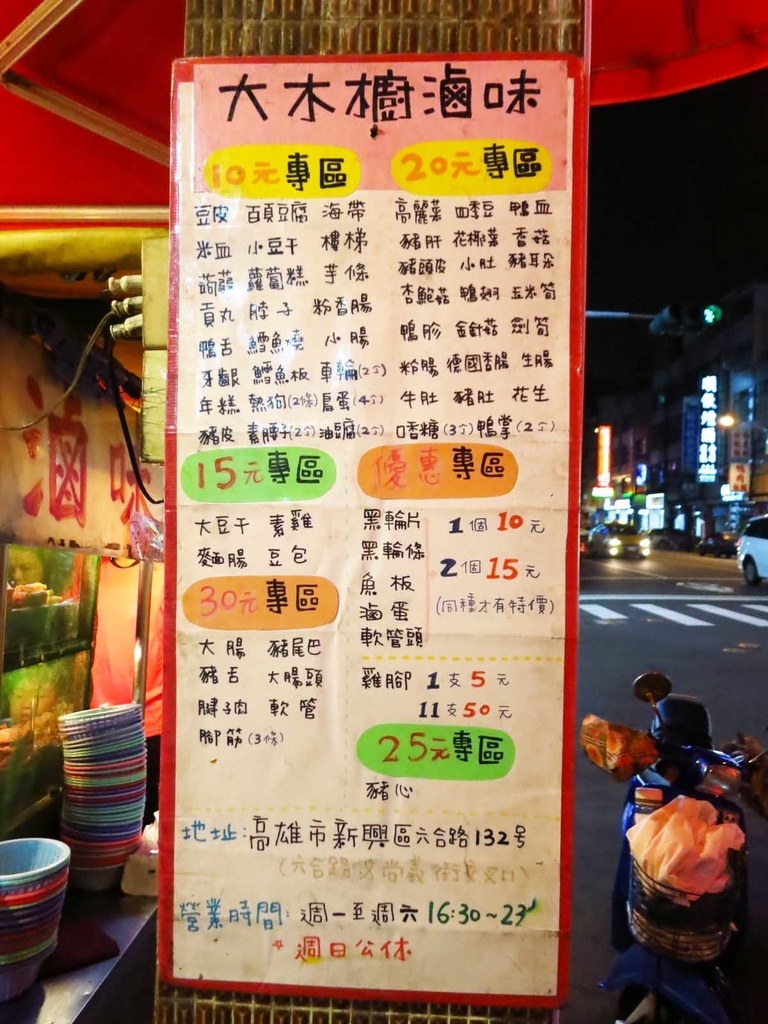 大木櫥滷味
10元專區
豆皮 百頁豆腐 海帶
米血 小豆干 樓梯
蒟蒻 蘿蔔糕 芋條
貢丸 脖子 粉香腸
鴨舌 鱈魚燒 小腸
牙齦 鱈魚板 車輪(2个)
年糕 熱狗(2條) 鳥蛋(4个)
豬皮 素腰子(2个) 油豆腐(2个)
20元專區
高麗菜 四季豆 鴨血
豬肝 花椰菜 香菇
豬頭皮 小肚 豬耳朵
杏鮑菇 鴨翅 玉米筍
鴨胗 金針菇 劍筍
粉腸 德國香腸 生腸
牛肚 豬肚 花生
口香糖(3个) 鴨掌(2个)
15元專區
大豆干 素雞
麵腸 豆包
30元專區
大腸 豬尾巴
豬舌 大腸頭
腱子肉 軟管
腳筋(3條)
優惠專區
黑輪片
黑輪條
魚板
滷蛋
軟管頭
1個10元
2個15元
(同種才有特價)
雞腳 1支5元
11支50元
25元專區
豬心
地址:高雄市新興區六合路132号
(六合路及尚義街交叉口)
營業時間:週一至週六16:30~23
*週日公休
滷味